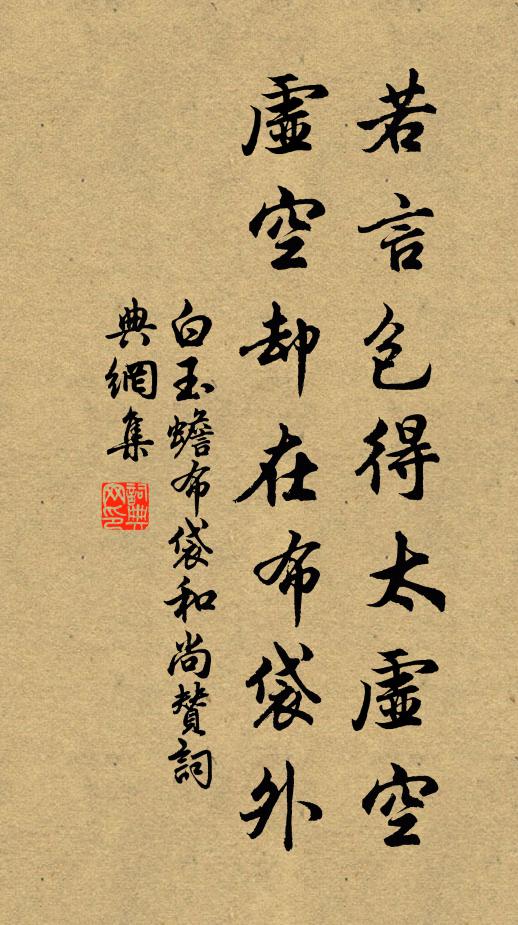 若言包得太虛空
虛空却在布袋外
白玉蟾布袋和尚贊詞
典網集
詞典网印